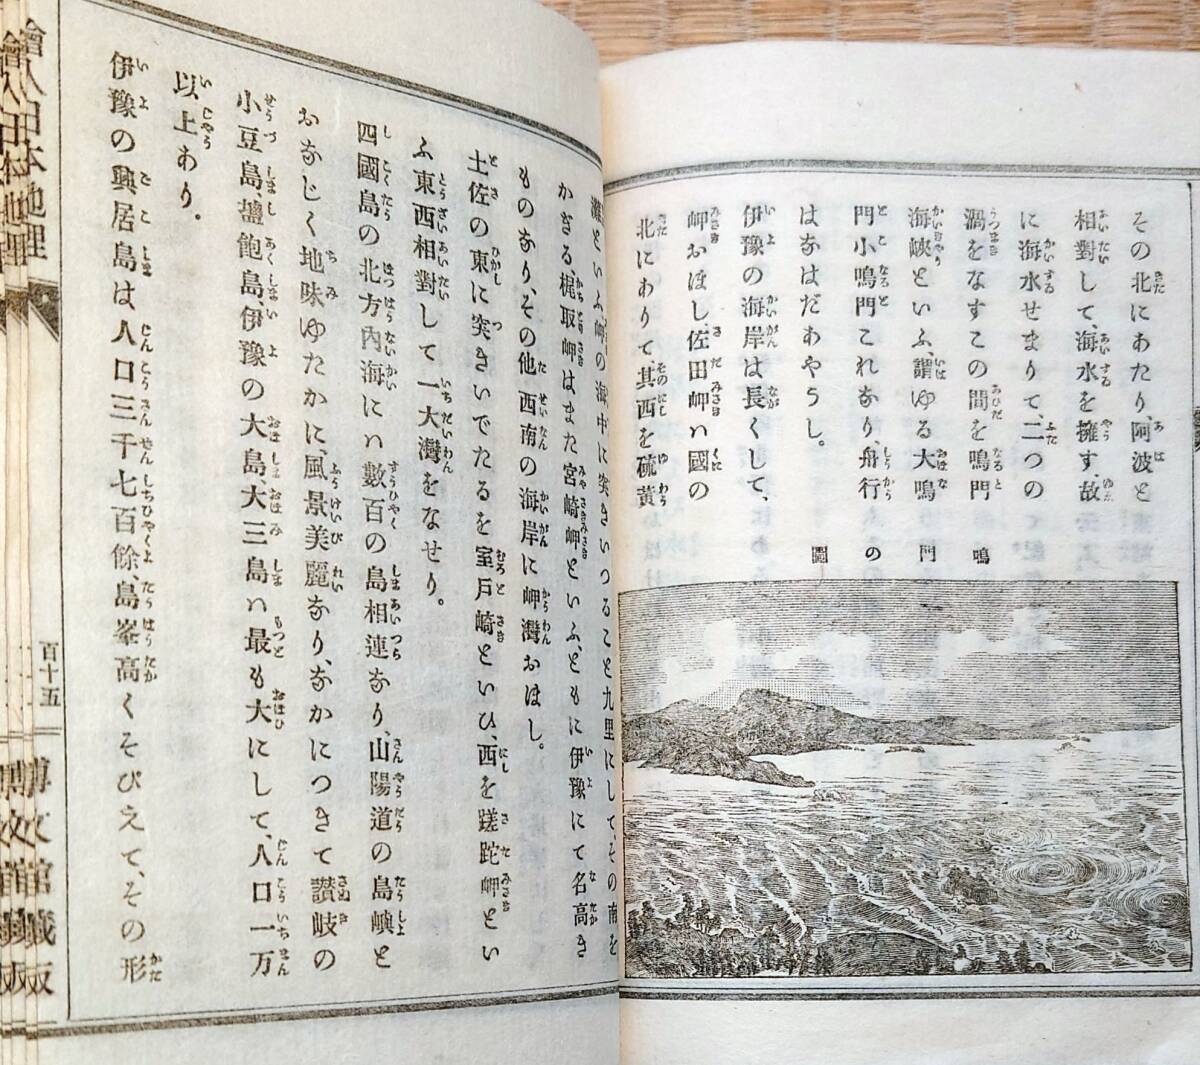 その北にあたり、阿波と
相對して、海水を擁す、故
に海水せまりて、二つの
渦をなすこの間を鳴門
海峽といふ、謂ゆる大鳴
門小鳴門これなり、舟行
はなはだあやうし。
伊豫の海岸は長くして、
岬おほし、佐田岬ハ國の
北にありて其西を硫黄
鳴門の圖
灘といふ岬の海中に突きいつること九里にして、その南を
かぎる、梶取岬はまた宮崎岬といふ、ともに伊豫にて名高き
ものなり、その他西南の海岸に岬灣おほし。
土佐の東に突きいでたるを室戸崎といひ、西を蹉跎岬とい
ふ東西相對して一大灣をなせり。
四國島の北方内海にハ數百の島相連なり、山陽道の島嶼と
おなじく地味ゆたかに、風景美麗なり、なかにつきて讃岐の
小豆島、鹽飽島伊豫の大島、大三島ハ最も大にして、人口一万
以上あり。
伊豫の興居島は人口三千七百餘、島峯高くそびえて、その形
繪入日本地理
百十五
博文館藏版